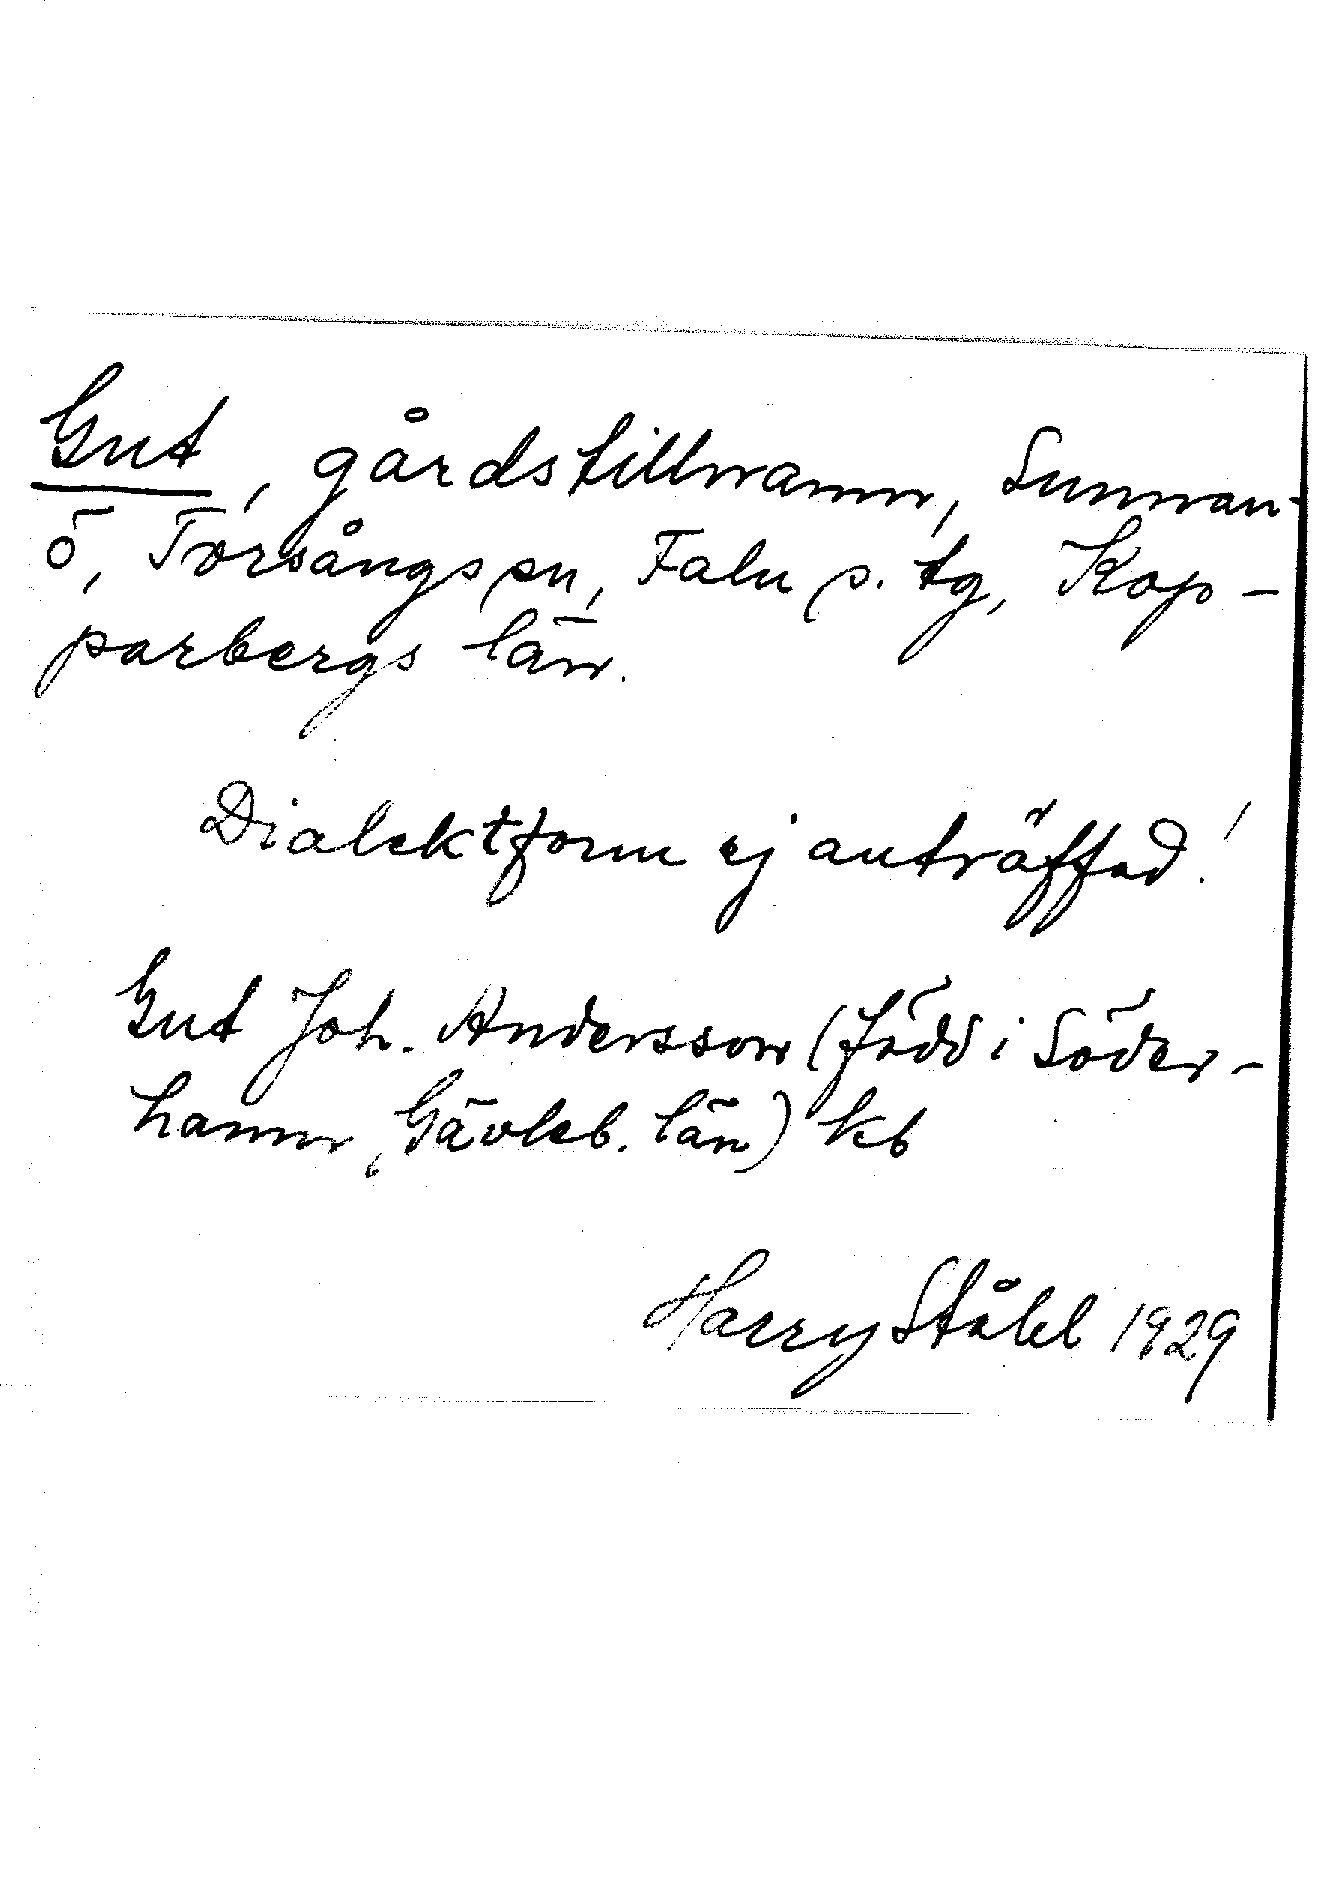 Gut, gårdstillnamn, Sunnan-
ö, Torsångs sn, Falu s. tg, Kop-
parbergs län.
Dialektform ej anträffad!
Gut Joh. Andersson (född i Söder-
hamn, Gävleb. län) kb
Harry Ståhl 1929